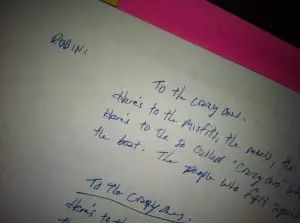 ROBIN:
To the Crazy Ones.
Here's to the misfits, the rebels, the
Here's to the so called "Crazy ones" who
the boat. The people who fight
To the Crazy Ones.
Here's to the